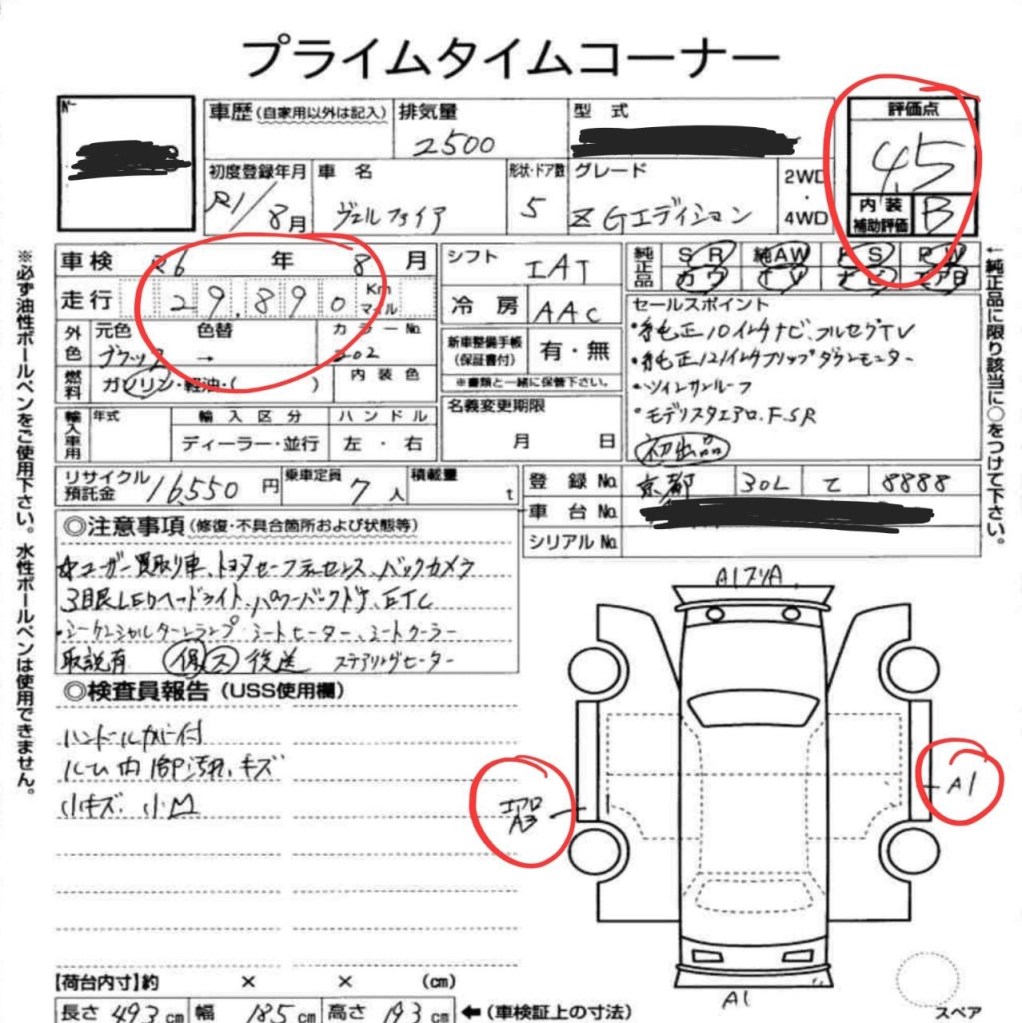 プライムタイムコーナー
No
車歴(自家用以外は記入)
排気量
2500
型 式
評価点
4.5
初度登録年月
R1/8月
車 名
ヴェルファイア
形状・ドア数
5
グレード
Z Gエディション
2WD
・
4WD
内 装
補助評価
B
車検 R6 年 8月
走行 29,890 Km マイル
外色
元色
ブラック
色替
→
カラーNo.
202
燃料
ガソリン・軽油・( )
内装色
輸入車用
年式
輸入区分
ディーラー・並行
ハンドル
左 ・ 右
シフト
IAT
冷 房
AAC
新車整備手帳
(保証書付)
有・無
※書類と一緒に保管下さい。
名義変更期限
月 日
純正品
SR 純AW PS PW
カワ TV ナビ エアB
セールスポイント
・純正10インチナビ、フルセグTV
・純正12インチフリップダウンモニター
・ツインサンルーフ
・モデリスタエアロ.F.S.R
初出品
←純正品に限り該当に○をつけて下さい。
※必ず油性ボールペンをご使用下さい。水性ボールペンは使用できません。
リサイクル
預託金
16550 円
乗車定員
7 人
積載量
t
登 録 No. 京都 30L て 8888
車 台 No.
シリアル No.
◎注意事項(修復・不具合箇所および状態等)
☆ユーザー買取り車、トヨタセーフティセンス、バックカメラ
3眼LEDヘッドライト、パワーバックドア、ETC
・シーケンシャルターンランプ・シートヒーター、シートクーラー
取説有 保 ス 後送 ステアリングヒーター
◎検査員報告(USS使用欄)
ハンドルカバー付
ルーム内部汚れ、キズ
小キズ、小凹
A1
エアロ
A3
A1
A1
スペア
【荷台内寸】約 × × (cm)
長さ 493 cm 幅 185 cm 高さ 193 cm ←(車検証上の寸法)